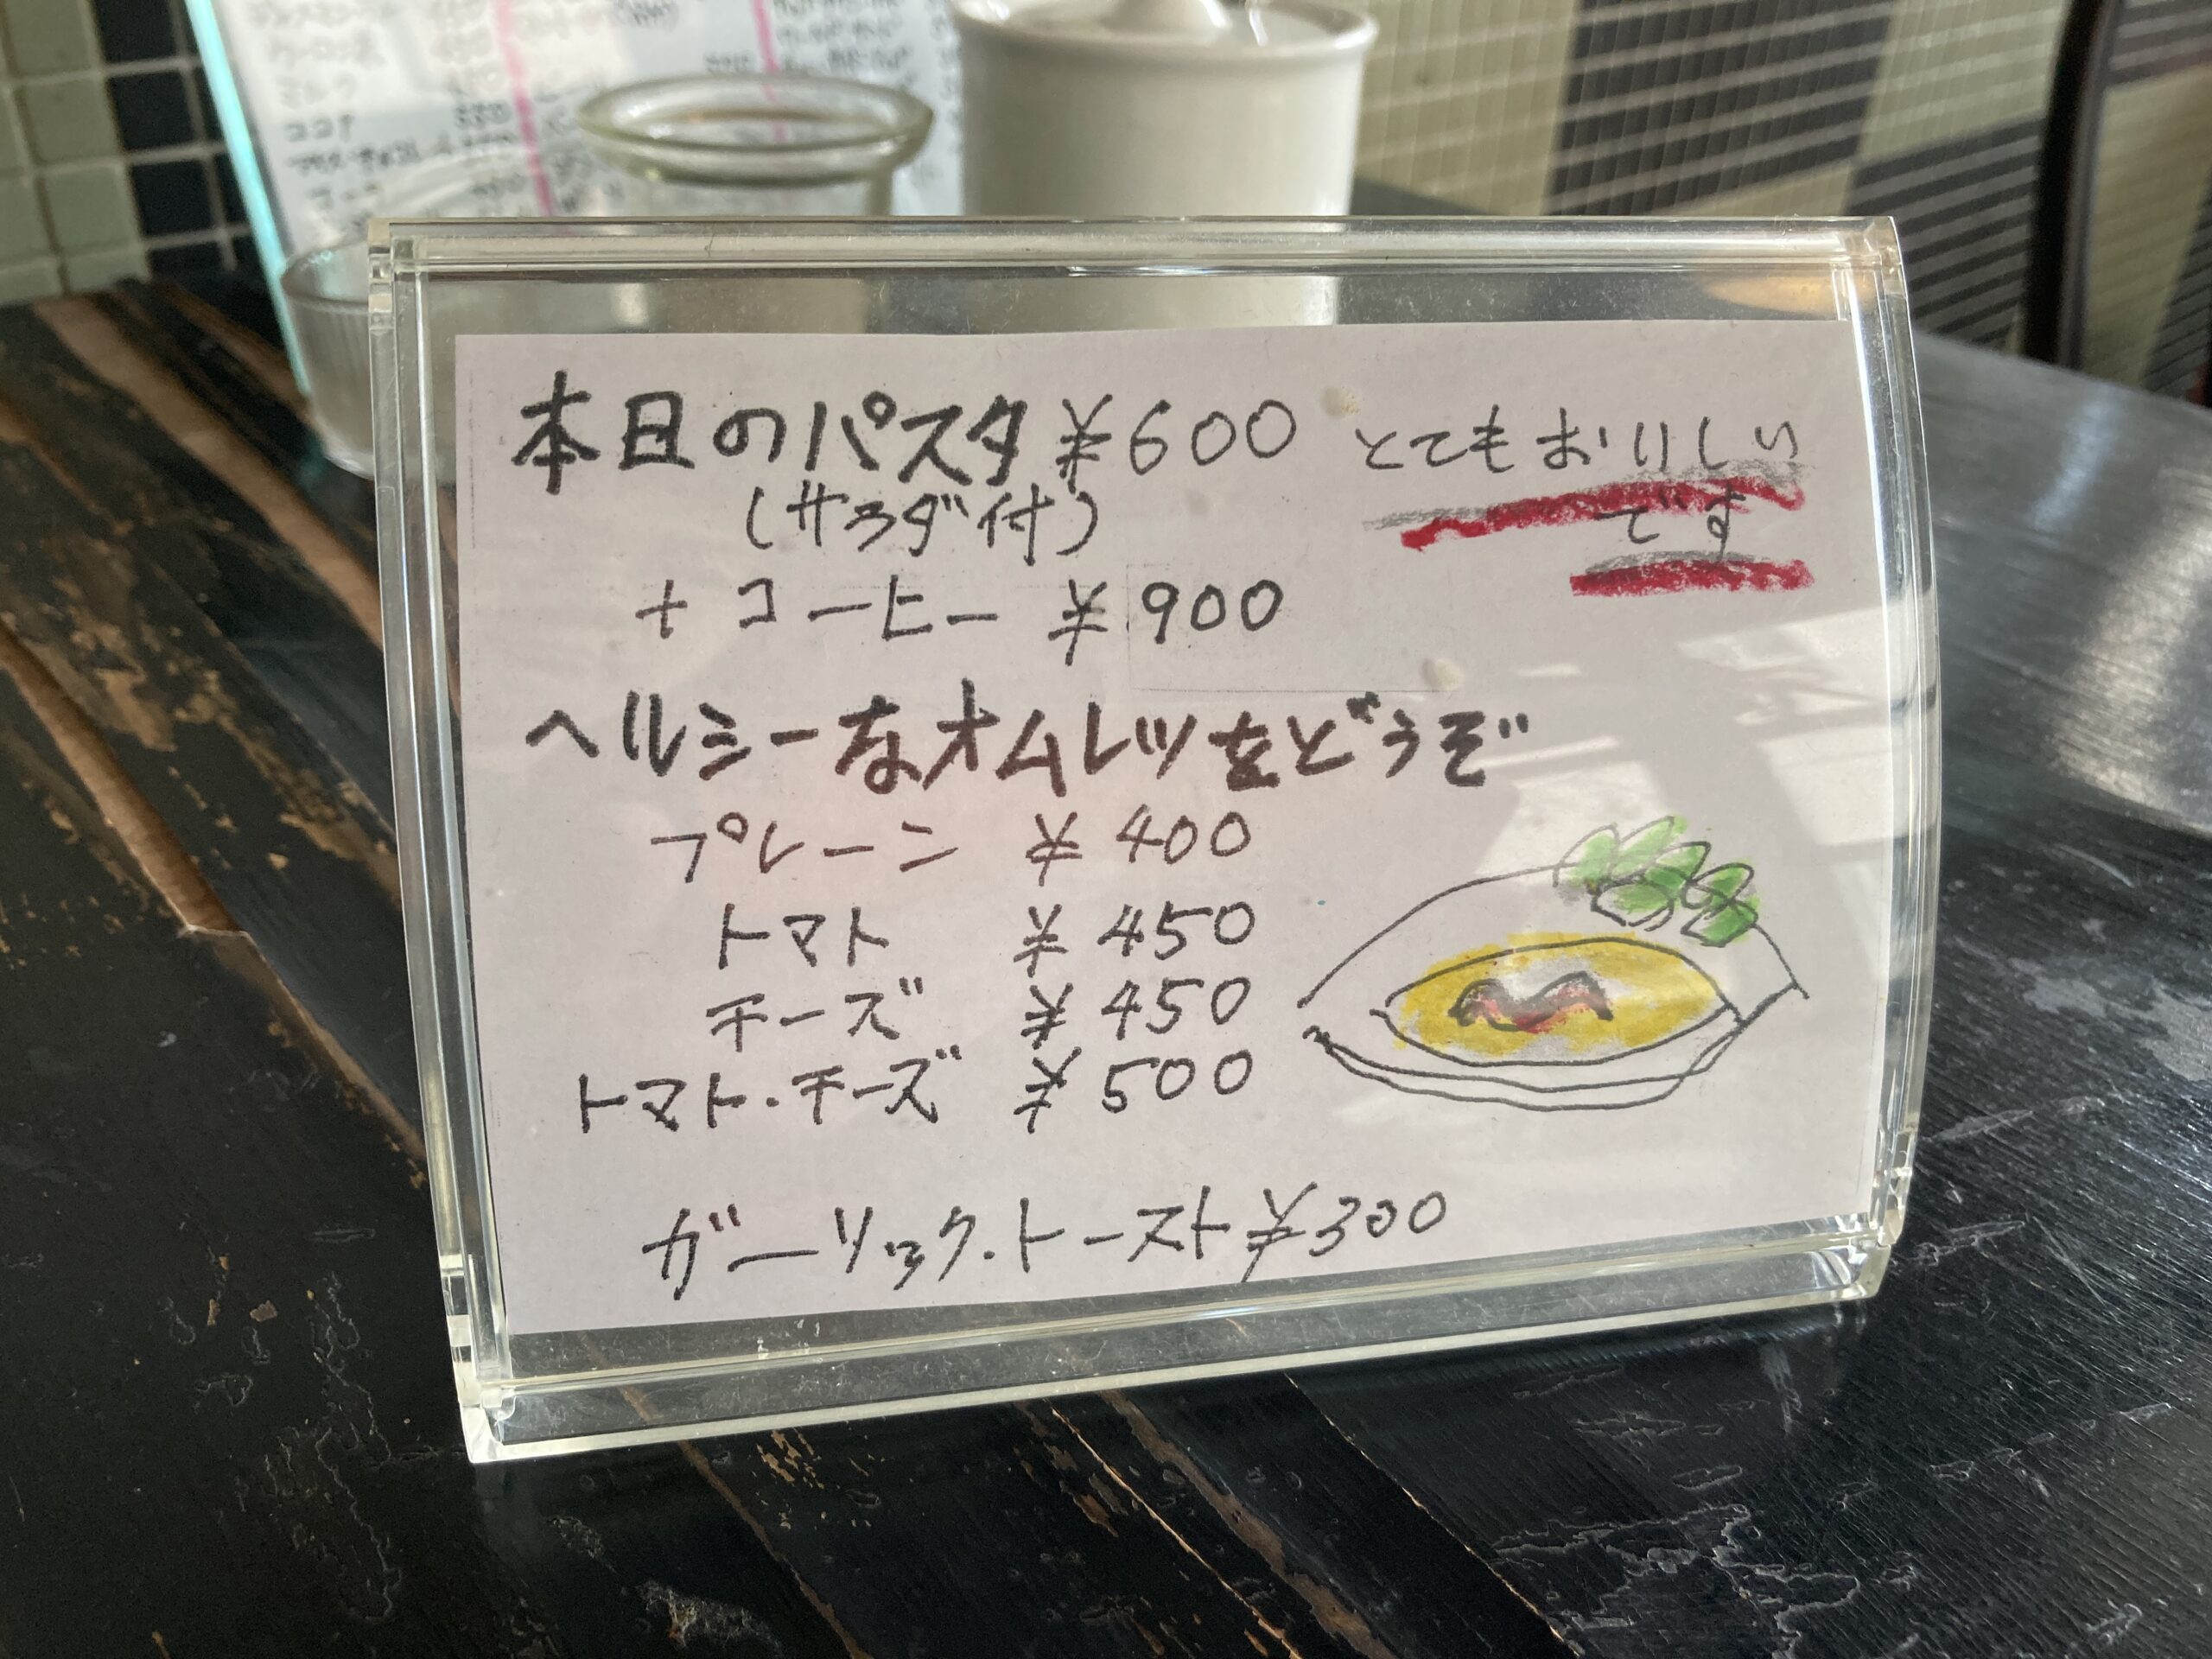 本日のパスタ ¥600 とてもおいしい
(サラダ付) です
+ コーヒー ¥900
ヘルシーなオムレツをどうぞ
プレーン ¥400
トマト ¥450
チーズ ¥450
トマト・チーズ ¥500
ガーリック・トースト ¥300
ココア 550